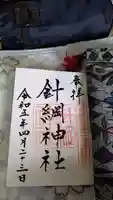 奉拝
針綱神社
令和五年四月二十三日